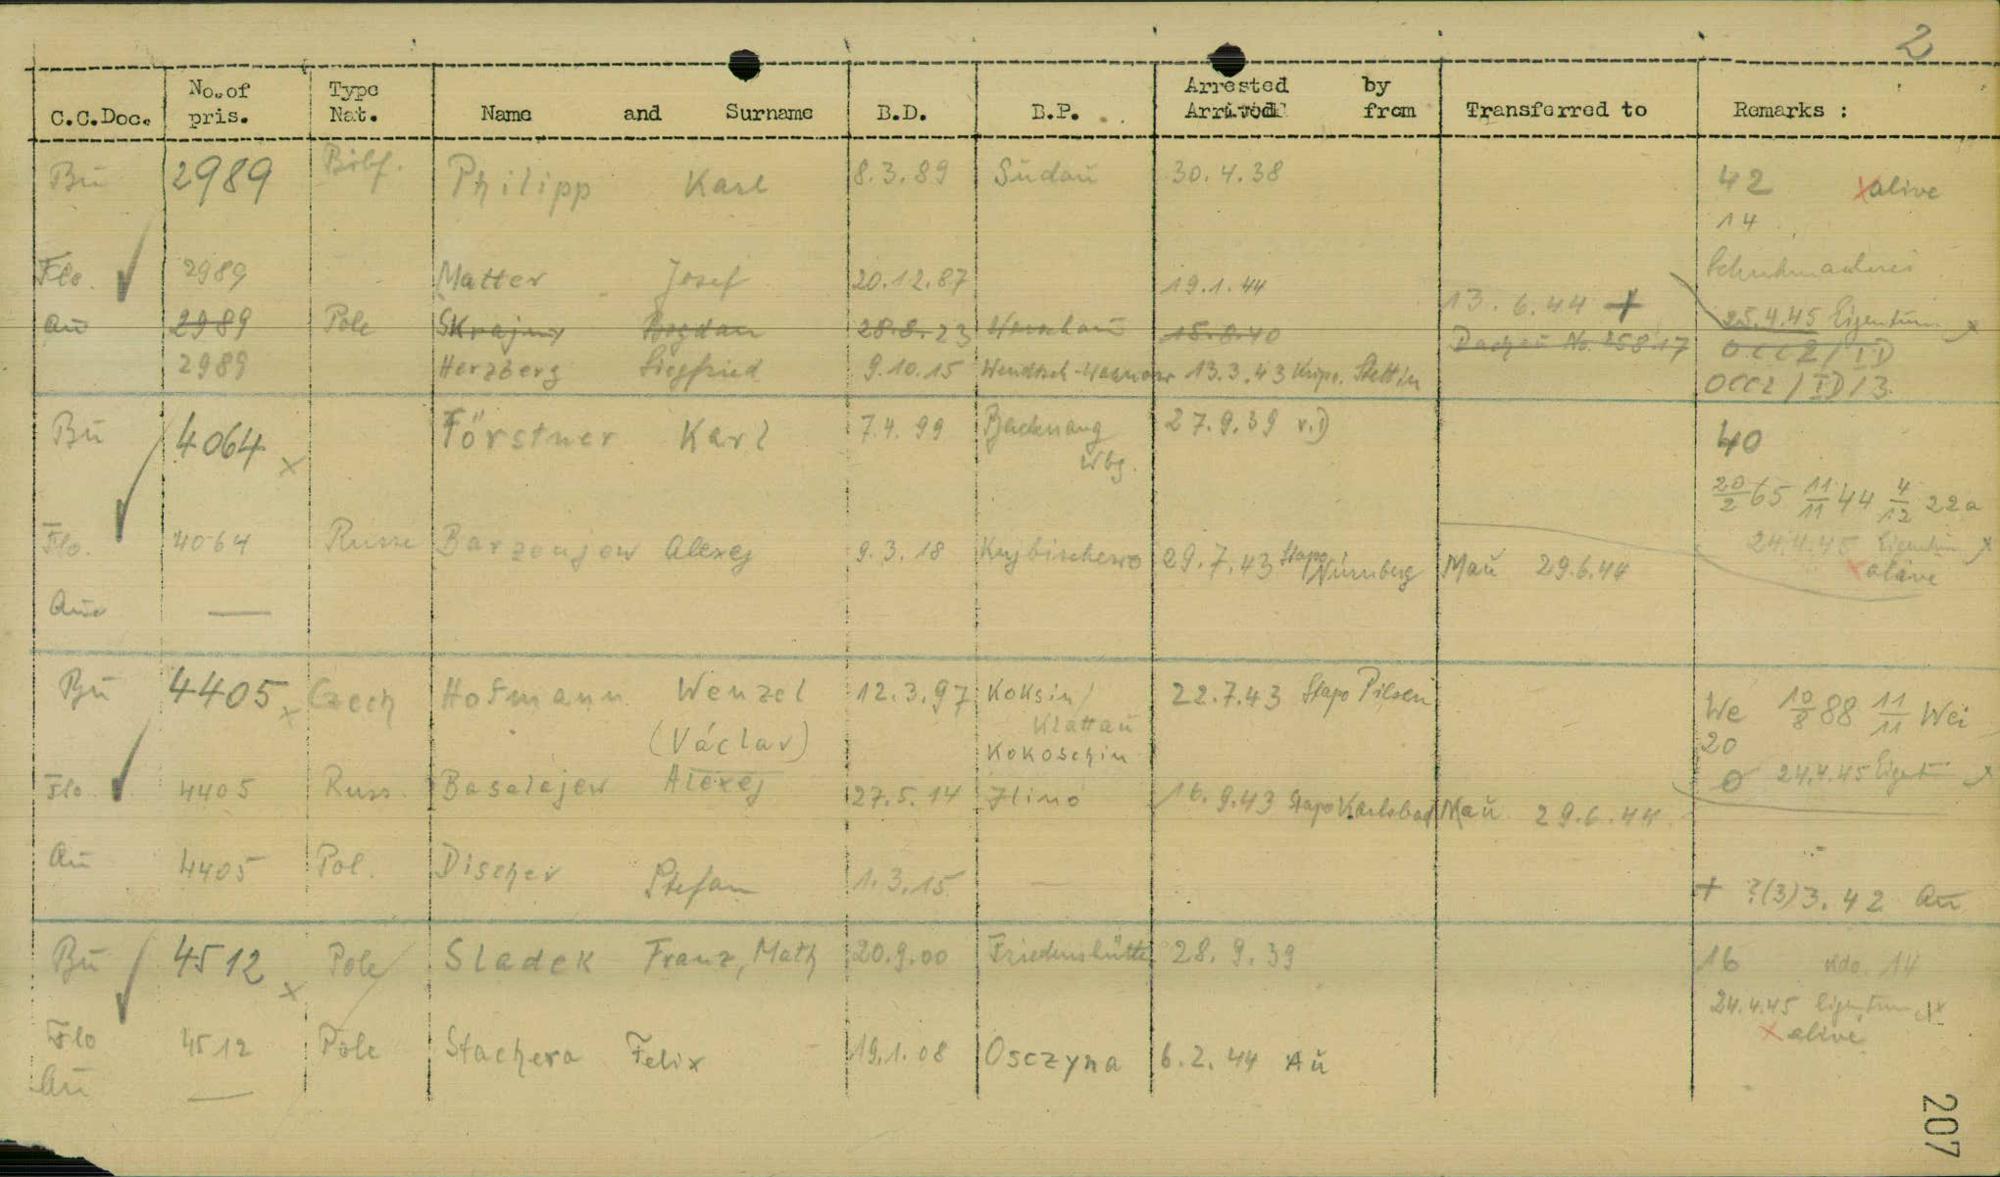 2
C.C.Doc. No. of pris. Type Nat. Name and Surname B.D. B.P. Arrested by Arrived from Transferred to Remarks :
Bu 2989 Bibf. Philipp Karl 8.3.89 Sudau 30.4.38 42 x alive
14
Flo. 2989 Matter Josef 20.12.87 19.1.44 Schuhmacherei
13.6.44 +
Au 2989 Pole Skrajny Bogdan 28.8.23 15.8.40 Dachau No. 25.4.45 Eigentum
OCC2/ID
2989 Herzberg Siegfried 9.10.15 13.3.43 Kripo. Stettin OCC2/ID/3.
Bu 4064 x Förstner Karl 7.4.99 Backnang Wbg. 27.9.39 v.D 40
20/2 65 11/11 44 4/12 22a
24.4.45 Eigentum
Flo. 4064 Russe Barzenjew Alexej 9.3.18 Kujbischewo 29.7.43 Stapo Nürnberg Mau 29.6.44 x alive
Aus —
Bu 4405 x Czech Hofmann Wenzel 12.3.97 Koksin/ 22.7.43 Stapo Pilsen We 10/8 88 11/11 Wei
(Václav) Klattau 20
Kokoschin
0 24.4.45
Flo. 4405 Russ. Basalajew Alexej 27.5.14 Ilino 16.9.43 Stapo Karlsbad Mau 29.6.44
Au 4405 Pol. Discher Stefan 1.3.15 — + ?(3)3.42 Au
Bu 4512 x Pole Sladek Franz, Math 20.9.00 Friedenshütte 28.9.39 16 Kdo. 14
24.4.45 Eigentum
x alive
Flo 4512 Pole Stachera Felix 19.1.08 Osczyna 6.2.44 Au
Au —
207